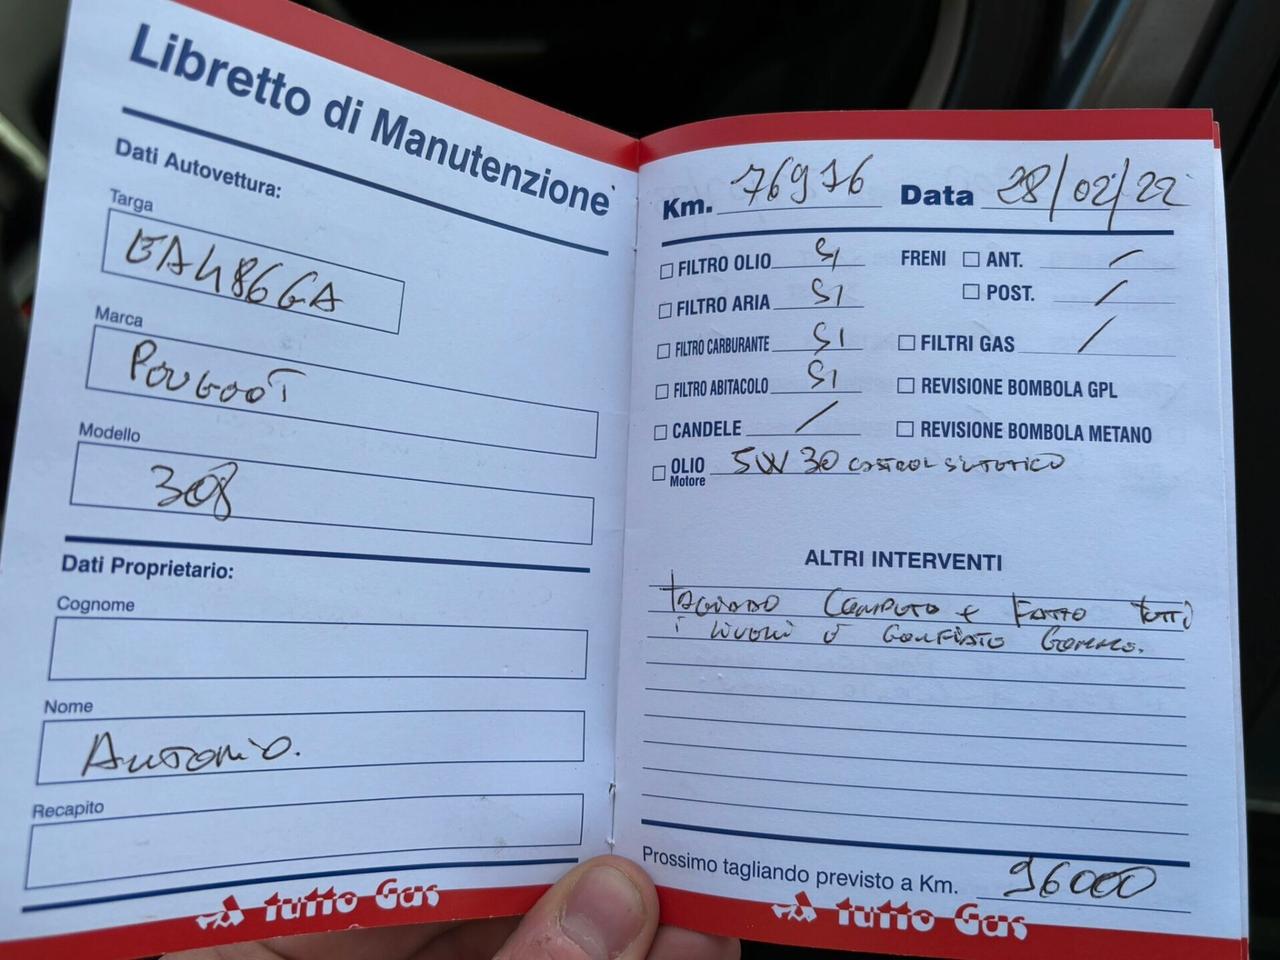 Libretto di Manutenzione
Dati Autovettura:
Targa
EA486GA
Marca
POUGOOT
Modello
308
Dati Proprietario:
Cognome
Nome
ANTONIO.
Recapito
tutto Gas
Km. 76976 Data 28/02/22
FILTRO OLIO SI
FILTRO ARIA SI
FILTRO CARBURANTE SI
FILTRO ABITACOLO SI
CANDELE /
OLIO Motore 5W30 CASTROL SINTETICO
FRENI ANT. /
POST. /
FILTRI GAS /
REVISIONE BOMBOLA GPL
REVISIONE BOMBOLA METANO
ALTRI INTERVENTI
FATTO TUTTI
i LIVELLI E GONFIATO GOMME.
Prossimo tagliando previsto a Km. 96000
tutto Gas